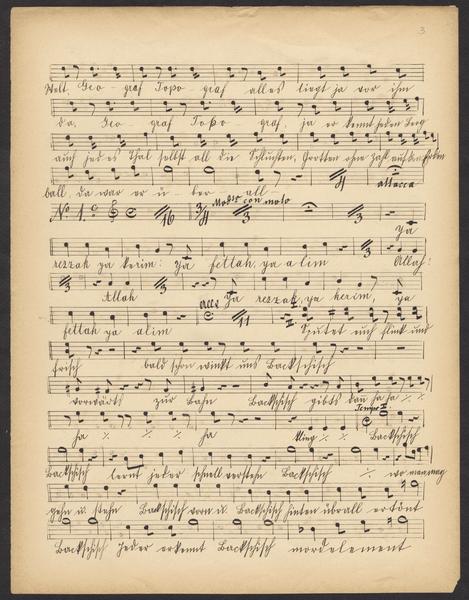 3
Welt. Geo - graf Topo - graf alles liegt ja vor ihm
da, Geo graf Topo graf, ja er kennt jeden Berg
auch jedes Thal selbst all die Schluchten, Grotten ohne Zahl auf dem Erden
ball, da war er ü - ber - all 4 attacca
No 1. C 16 3/4 Modto con moto 3 3 Ja
rezzak ya kerim: Ya fettah, ya alim 3 Allah!
3 Allah 3 Ya rezzak, ya kerim, ya
fettah ya alim Allo 11 Sputet euch flink und
frisch bald schon winkt uns Backschisch
vorwärts zur Bahn Backschisch gibts dann ha ha ٪
ha ٪ ٪ ha Kling ٪ ٪ Tempo I Backschisch
Backschisch lernt jeder schnell verstehn Backschisch ٪ wo man mag
gehn u. stehn Backschisch vorn u. Backschisch hinten überall ertönt
Backschisch Jeder erkennt Backschisch mordelement